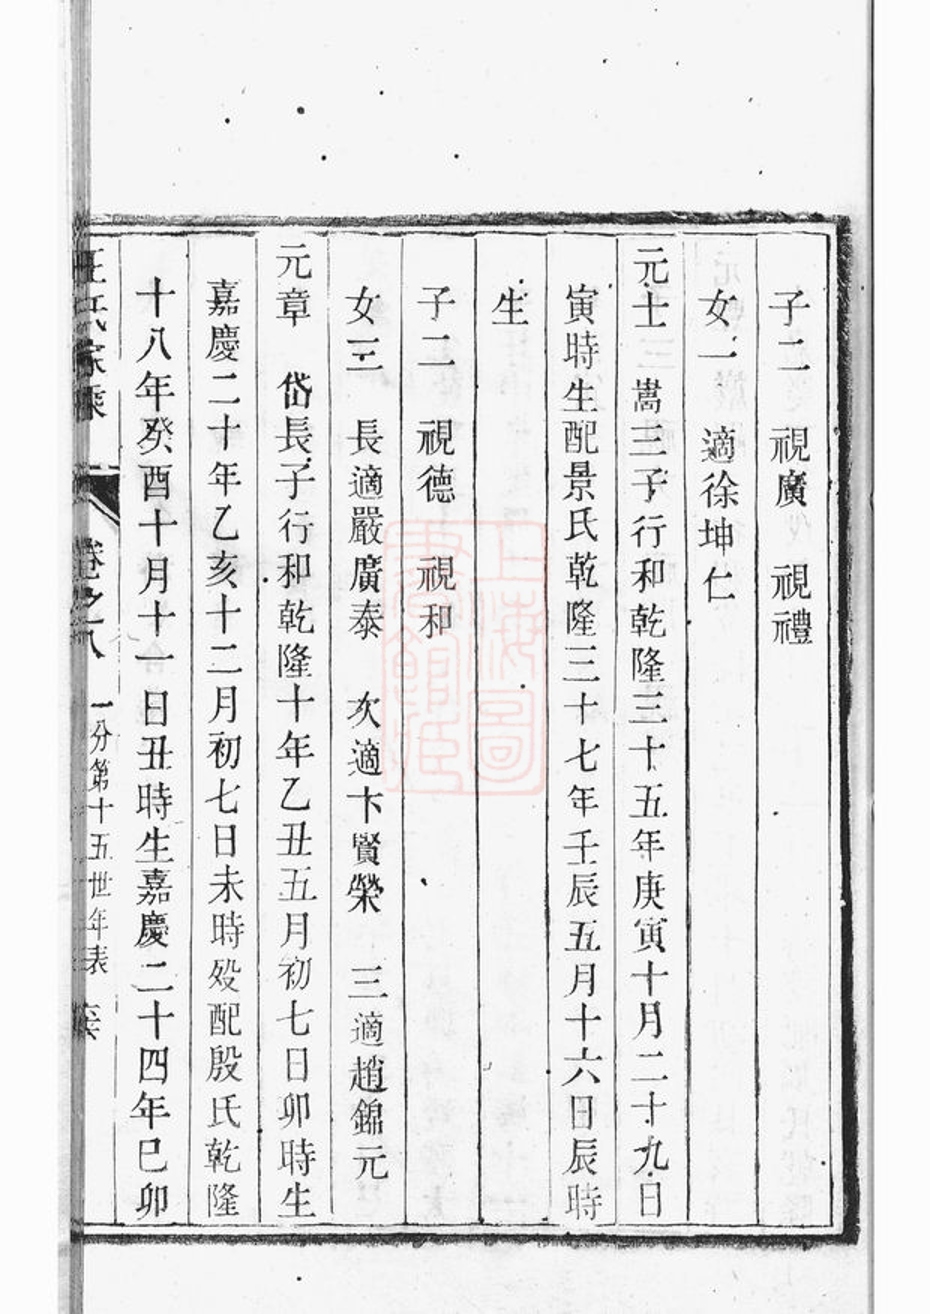 子二 視廣 視禮
女一 適徐坤仁
元士 嵩三子行和乾隆三十五年庚寅十月二十九日
寅時生配景氏乾隆三十七年壬辰五月十六日辰時
生
子二 視德 視和
女三 長適嚴廣泰 次適卞賢榮 三適趙錦元
元章 岱長子行和乾隆十年乙丑五月初七日卯時生
嘉慶二十年乙亥十二月初七日未時殁配殷氏乾隆
十八年癸酉十月十一日丑時生嘉慶二十四年巳卯
氏家乘 卷之八 一分第十五世年表
上海圖
書館藏